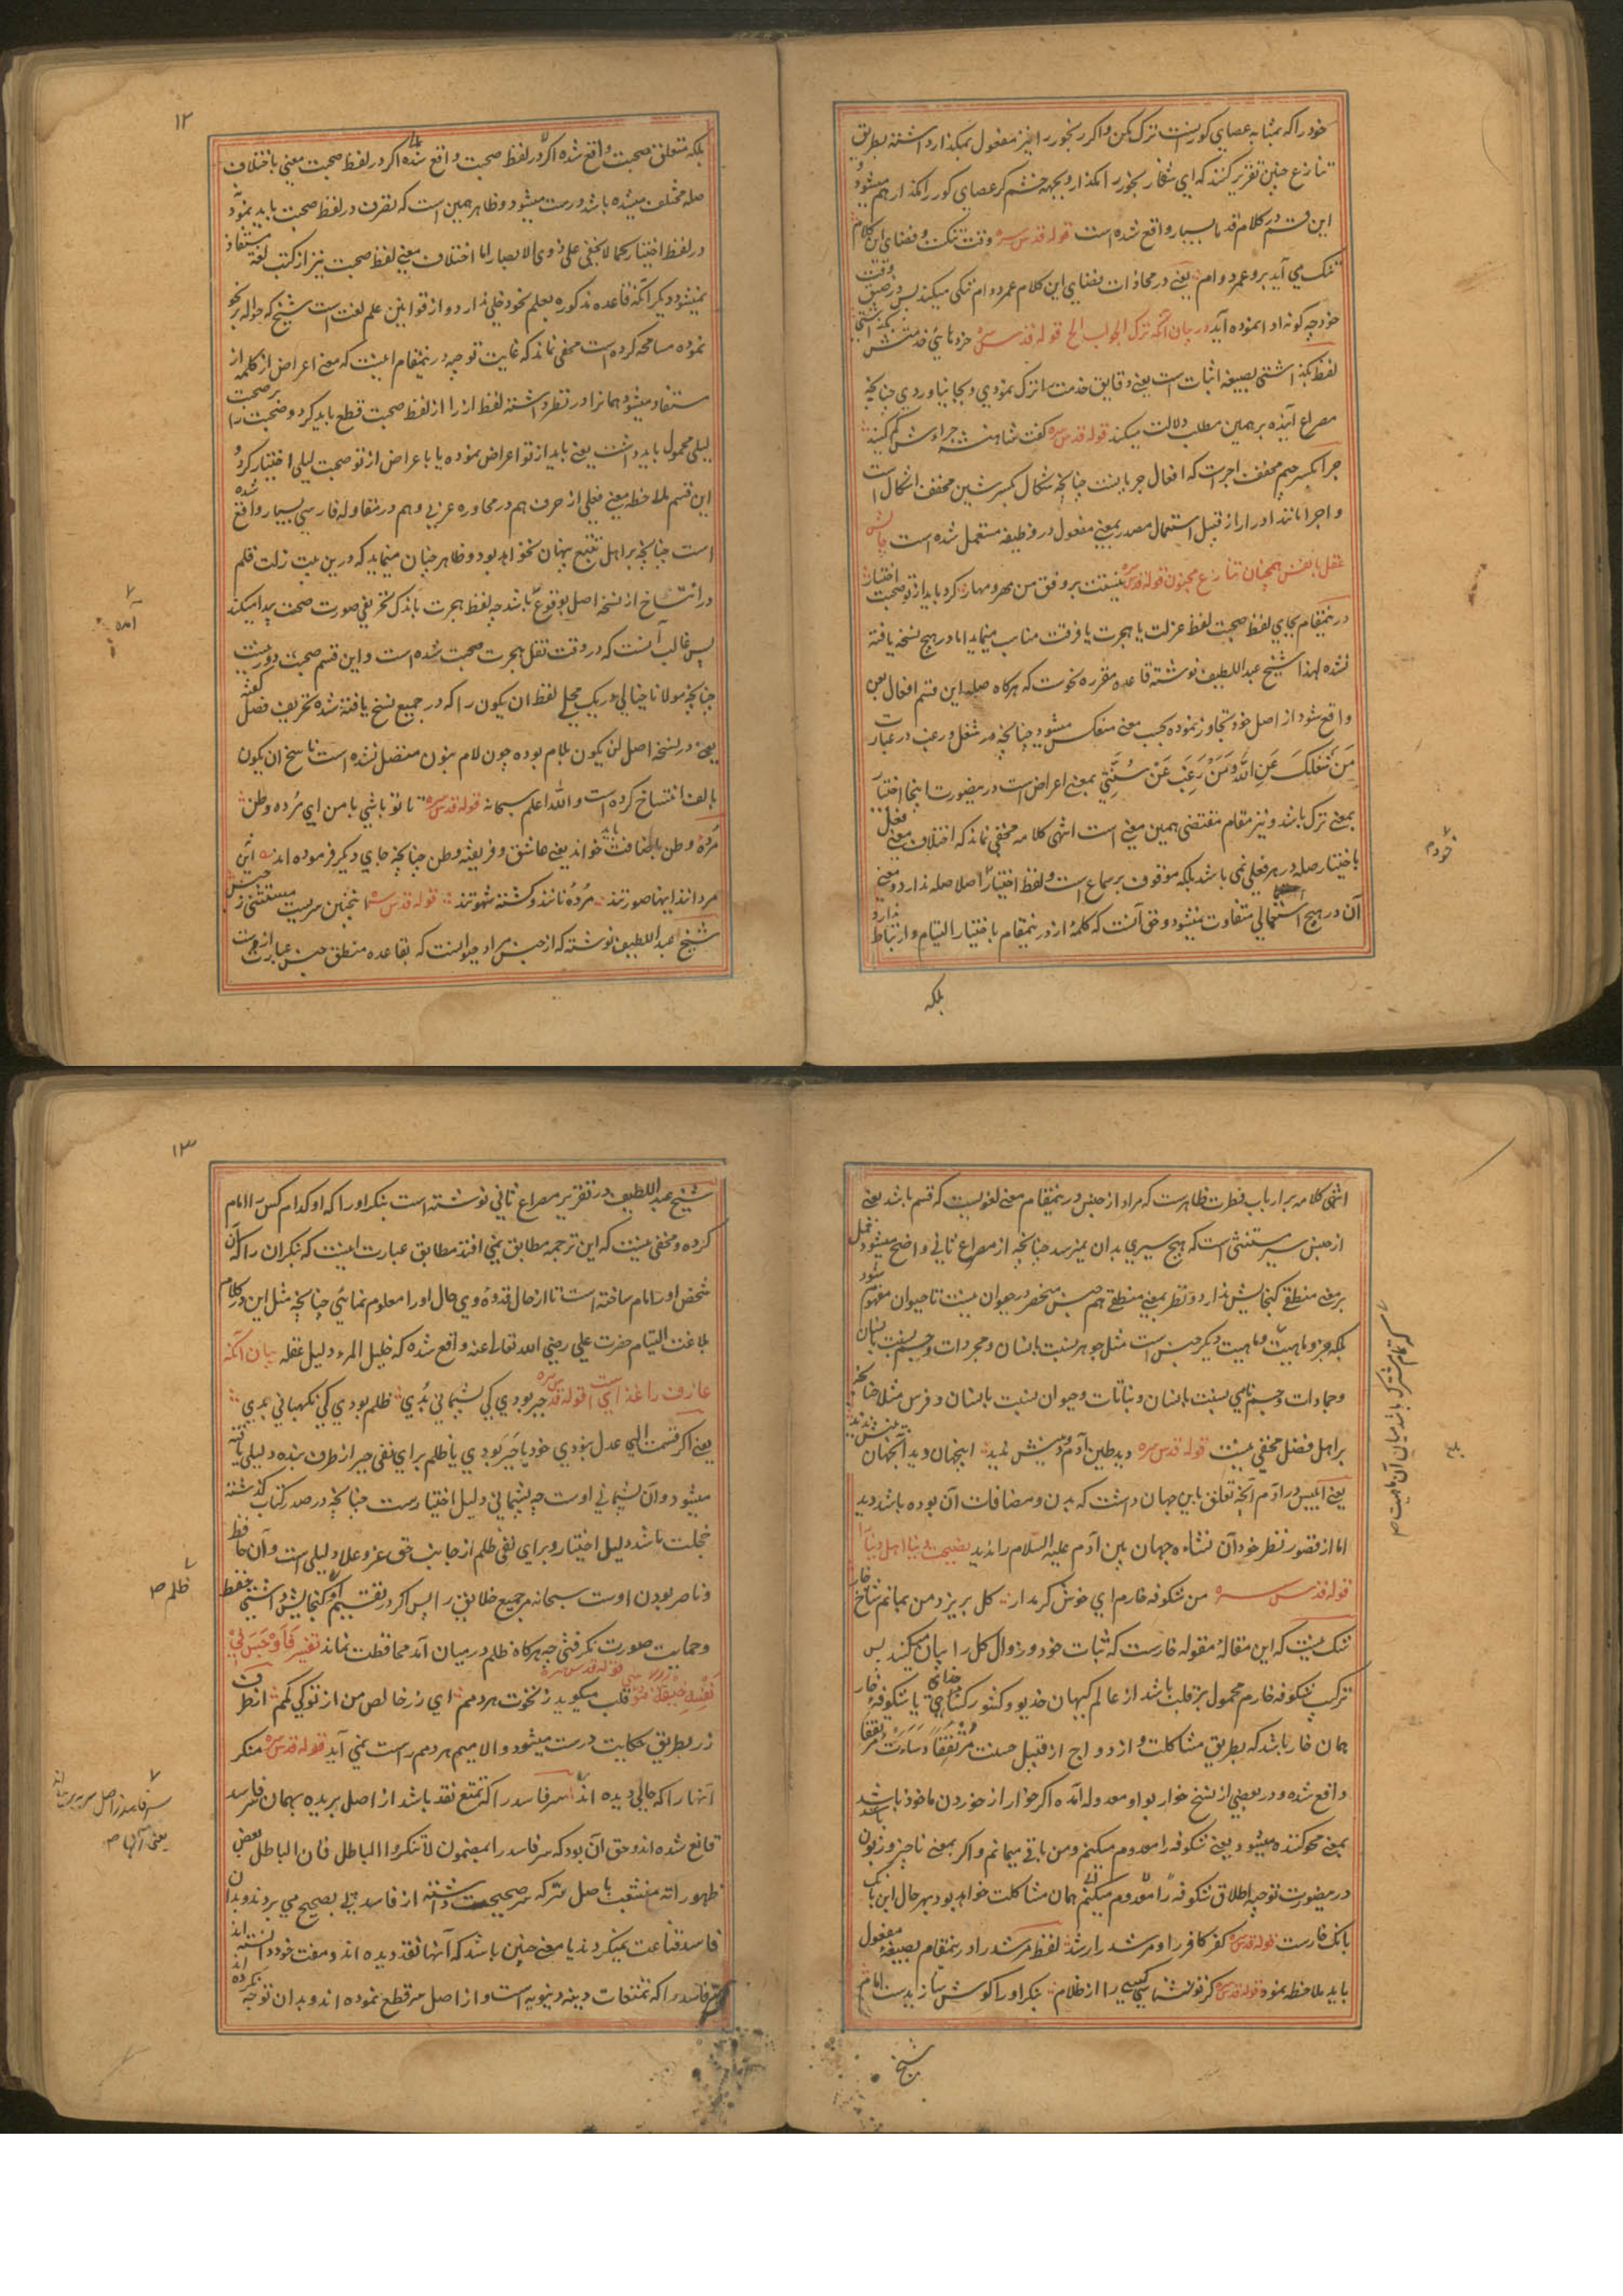 خود را که بمثابه عصای کورست ترک مکن و اکر رنجور را نیز مفعول بمکذار داشته بطریق
تنازع چنین تقریر کنند که ای شغا رنجور را مکذار و بجهه خشم کر عصای کور را مکذار هم میشود و
این قسم در کلام قدما بسیار واقع شده است قوله قدس سره وقت تنکست و فضای این کلام
تنک می آید برو عمر دوام یعنی در محاذات بفضای این کلام عمر دوام تنکی میکند پس در ضیق وقت
خود چه کونه ادا نموده آید در بیان آنکه ترک الجواب الخ قوله قدس سره خردهای خدمتش بکذاشتی
لفظ بکذاشتی بصیغه اثبات است یعنی دقایق خدمت را ترک نمودی و بجا نیاوردی چنانچه
مصراع آینده برهمین مطلب دلالت میکند قوله قدس سره کفت شاهنشه جرا اوش کم کنید
جرا بکسر جیم مخفف اجراست که افعال جریانست چنانچه شکال بکسر شین مخفف اشکال است
و اجرا مانند ادرار از قبیل استعمال مصدر بمعنی مفعول در وظیفه مستعمل شده است چالش
عقل با نفس همچنان تنازع مجنون قوله قدس سره نیستت بر وفق من مهر و مهار کرد باید از تو صحبت اختیار
درینمقام بجای لفظ صحبت لفظ عزلت یا هجرت یا فرقت مناسب مینماید اما در هیچ نسخه یافته
نشده لهذا شیخ عبد اللطیف نوشته قاعده مقرره نحوست که هرکاه صله این قسم افعال بعن
واقع شود از اصل خود تجاوز نموده بحسب معنی منعکس میشود چنانچه در شغل و رغب در عبارت
مَنْ شَغَلَکَ عَنِ اللّٰهِ وَمَنْ رَغِبَ عَنْ سُنَّتِي بمعنی اعراض است درینصورت اینجا اختیار
بمعنی ترک باشد و نیز مقام مقتضی همین معنی است انتهی کلامه مخفی نماند که اختلاف معنی فعل
باختیار صله در هر فعلی نمی باشد بلکه موقوف بر سماع است و لفظ اختیار اصلا صله ندارد و معنی
آن در هیچ استعمالی متفاوت نمیشود و حق آنست که کلمهٔ از درینمقام باختیار التیام و ارتباط ندارد
بلکه
خودم
۱۲
بلکه متعلق صحبت واقع شده اکر در لفظ صحبت واقع شده اکر در لفظ صحبت معنی باختلاف
صله مختلف میشده باشد درست میشود و ظاهر همین است که تصرف در لفظ صحبت باید نمود نه
در لفظ اختیار کما لا یخفی علی ذوی الابصار اما اختلاف معنی لفظ صحبت نیز از کتب لغة مستفاد
نمیشود دیکر آنکه قاعده مذکوره بعلم نحو دخلی ندارد و از قوانین علم لغت است شیخ که حواله بنحو
نموده مسامحه کرده است مخفی نماند که غایت توجیه درینمقام اینست که معنی اعراض از کلمه از
مستفاد میشود همانرا در نظر داشته لفظ از را از لفظ صحبت قطع باید کرد و صحبت را بر صحبت
لیلی محمول باید داشت یعنی باید از تو اعراض نموده یا با عراض از تو صحبت لیلی اختیار کرد و
این قسم ملاحظه معنی فعلی از حرف هم در محاوره عربی و هم در مقاوله فارسی بسیار واقع شده
است چنانچه بر اهل تتبع پنهان نخواهد بود و ظاهر چنان مینماید که درین بیت زلت قلم
در انتساخ از نسخه اصل بوقوع باشد چه لفظ هجرت باندک تحریفی صورت صحبت پیدا میکند
پس غالب آنست که در وقت نقل هجرت صحبت شده است و این قسم صحبت دور نیست
چنانچه مولانا خیالی در یک محل لفظ ان یکون را که در جمیع نسخ یافته شده تحریف فضل کفته
یعنی در نسخه اصل لن یکون بلام بوده چون لام بنون متصل نشده است ناسخ ان یکون
بالف انتساخ کرده است و الله اعلم سبحانه قوله قدس سره تا تو باشی با من ای مُرده وطن
مُردهٔ وطن باضافت باید خواند یعنی عاشق و فریفته وطن چنانچه جای دیکر فرموده اند این
مرد اند اینها صورتند مُردهٔ نانند و کشته شهوتند قوله قدس سره اینچنین سریست مستثنی ز جنس
شیخ عبد اللطیف نوشته که از جنس مراد حیوانست که بقاعده منطق جنس عبارت ازوست
آمده
انتهی کلامه بر ارباب فطرت ظاهرست که مراد از جنس درینمقام معنی لغویست که قسم باشد یعنی
از جنس سیر مستثنی است که هیچ سیری بدان نمیرسد چنانچه از مصراع ثانی واضح میشود حمل
بر معنی منطقی کنجایش ندارد و نظر بمعنی منطقی هم جنس منحصر در حیوان نیست تا حیوان مفهوم شود
بلکه جزو ماهیت و ماهیت دیکر جنس است مثل جوهر نسبت بانسان و مجردات و جسم نسبت بانسان
و جمادات و جسم نامی نسبت بانسان و نباتات و حیوان نسبت بانسان و فرس مثلا چنانچه
بر اهل فضل مخفی نیست قوله قدس سره دید طین آدم و دینش ندید اینجهان دید آنجهان بینش ندید
یعنی ابلیس در آدم آنچه تعلق باین جهان داشت که بدن و مضافات آن بوده باشد دید
اما از قصور نظر خود آن نشاء ه جهان بین آدم علیه السلام را ندید نصیحت دنیا اهل دنیا را
قوله قدس سره من شکوفه خارم ای خوش کرمدار کل بریزد من بمانم شاخ خار
شک نیست که این مقاله مقوله خارست که ثبات خود و زوال کل را بیان میکند پس
ترکیب شکوفه خارم محمول بر قلب باشد از عالم کیهان خدیو و کشور کتخدای یا شکوفهٔ خار
همان خار باشد که بطریق مشاکلت و ازدواج از قبیل حسنت مُرْتَفَقًا وَسَاءَتْ مُرْتَفَقًا
واقع شده و در بعضی از نسخ خوار بواو معدوله آمده اکر خوار از خوردن ماخوذ باشد
بمعنی محو کننده میشود یعنی شکوفه را معدوم میکنم و من باقی میمانم و اکر بمعنی ناچیز و زبون باشد
درینصورت توجیه اطلاق شکوفه را معدوم میکنم همان مشاکلت خواهد بود بهر حال این بانک
بانک خارست قوله قدس سره کفر کافر را و مرشد را رشد لفظ مرشد را درینمقام بصیغهٔ مفعول
باید ملاحظه نمود قوله قدس سره کر تو نشناسی کسی را از ظلام بنکر او را کوش سازیدست امام
شیخ
که تمام مشترک باشد میان آن ماهیت
۱۳
شیخ عبد اللطیف در تقریر مصراع ثانی نوشته است بنکر او را که او کدام کس را امام
کرده و مخفی نیست که این ترجمه مطابق نمی افتد مطابق عبارت اینست که بنکر ان را که آن
شخص او را امام ساخته است تا از حال قدوهٔ وی حال او را معلوم نمائی چنانچه مثل این در کلام
بلاغت التیام حضرت علی رضی الله تعالی عنه واقع شده که خلیل المرء دلیل عقله بیان آنکه
عارف را غذائیست قوله قدس سره جبر بودی کی پشیمانی بُدی ظلم بودی کی نکهبانی بدی
یعنی اکر قسمت الهی عدل نبودی خود یا جبر بودی یا ظلم برای نفی جبر از طرف بنده دلیلی یافته
میشود و آن پشیمانی اوست چه پشیمانی دلیل اختیارست چنانچه در صدر کتاب کذشته
خجلت باشد دلیل اختیار و برای نفی ظلم از جانب حق عز و علا دلیلی است و آن حافظ
و ناصر بودن اوست سبحانه مر جمیع خلایق را پس اکر در تقسیم او کنجایش داشتی حفظ
و حمایت صورت نکرفتی چه هرکاه ظلم در میان آمد محافظت نماند تفسیر فَأَوْجَسَ فِي
نَفْسِهِ خِيفَةً مُوسَى قوله قدس سره قلب میکوید ز نخوت هردمم ای زر خالص من از تو کی کمم از طرف
زر بطریق حکایت درست میشود والا میم هردمم راست نمی آید قوله قدس سره منکر
آنها را که حالی دیده اند سر فاسد را که تمتع نقد باشد از اصل بریده بهمان سر فاسد
قانع شده اند و حق آن بود که سر فاسد را بمضمون لا تنکروا الباطل فان الباطل بعض
ظهوراته منشعب باصل سر که سر صحیحست داشته از فاسد پی بصحیح می بردند و بدان
فاسد قناعت نمیکردند یا معنی چنین باشد که آنها نقد دیده اند و مفت خود دانسته اند
سر فاسد را که تمتعات دینه دنیویه است و از اصل سر قطع نموده اند و بدان توجه نکرده اند
ظلم